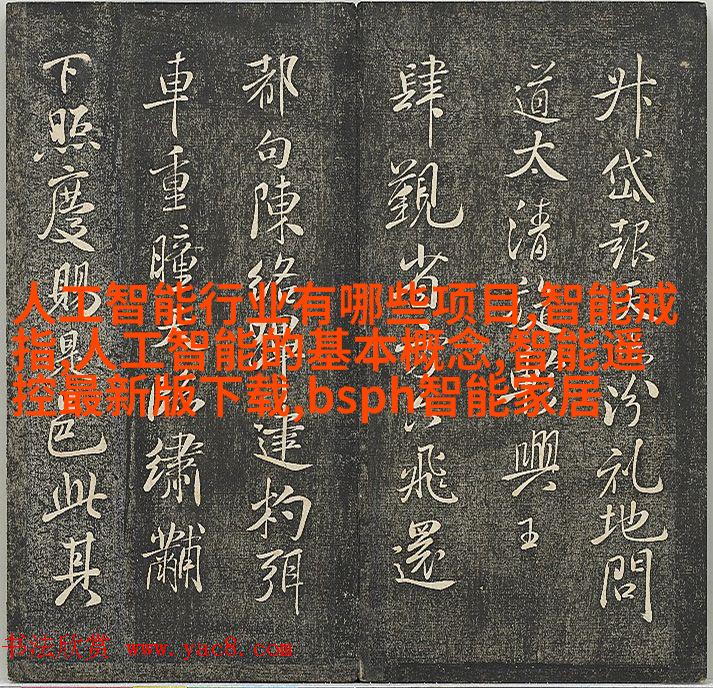 人工智能行业有哪些项目,智能戒
指,人工智能的基本概念,智能遥
控最新版下载,bsph智能家居
升岱報天汾礼地問
道太清興王
肆覲省飛還
都句陳絡建杓弭
車重瞳臨繡黼
下照慶賜見邑此其
书法欣赏 www.yac8.com